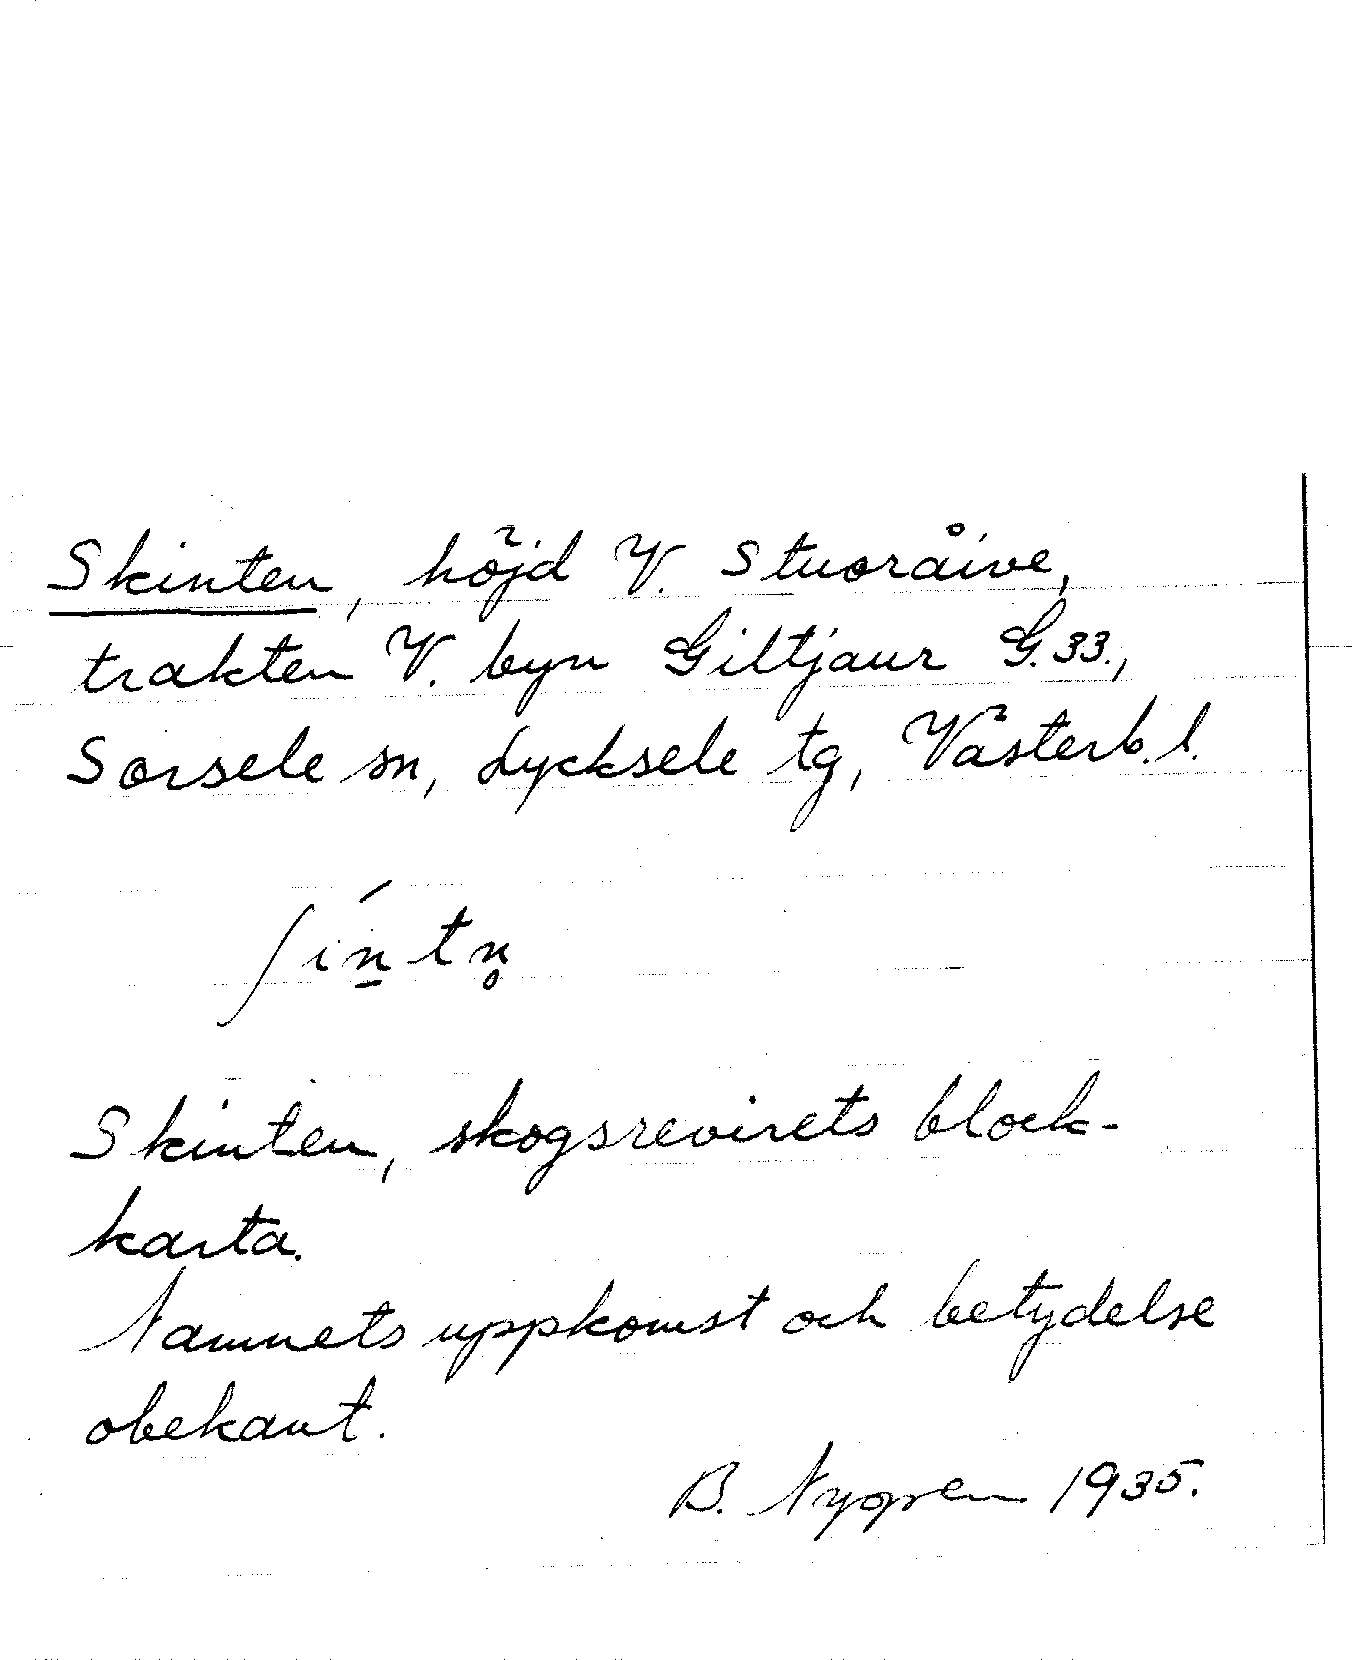 Skinten, höjd V. Stuoråive,
trakten V. byn Giltjaur G.33.,
Sorsele sn, Lycksele tg, Västerb.l.
ʃín̠tn̥
Skinten, skogsrevirets block-
karta.
Namnets uppkomst och betydelse
obekant.
B. Nygren 1935.